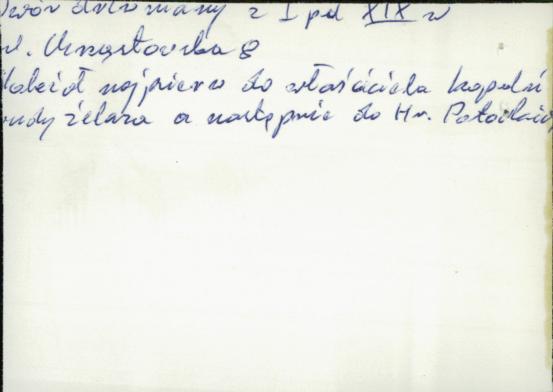 Dwór drewniany z I poł XIX w
ul. Chrząstowska 8
należał najpierw do właściciela kopalni
rudy żelaza a następnie do Hr. Potockich